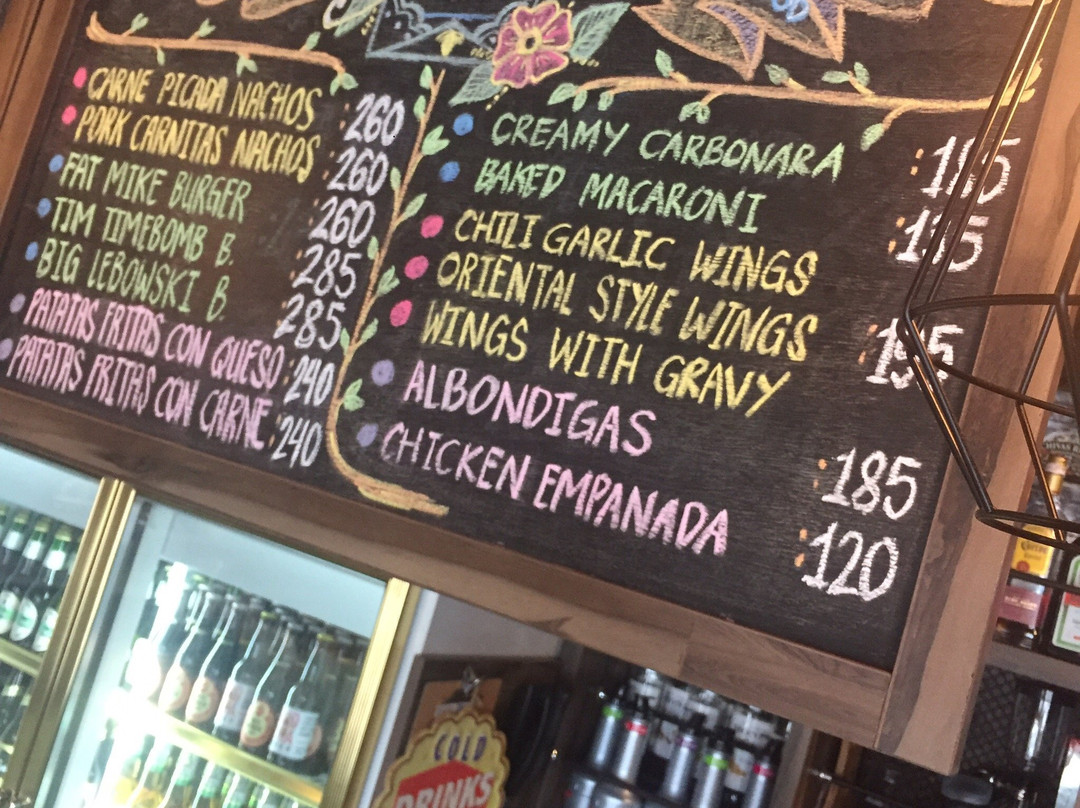 CARNE PICADA NACHOS : 260
PORK CARNITAS NACHOS : 260
FAT MIKE BURGER : 260
TIM TIMEBOMB B. : 285
BIG LEBOWSKI B. : 285
PATATAS FRITAS CON QUESO : 240
PATATAS FRITAS CON CARNE : 240
CREAMY CARBONARA
BAKED MACARONI
CHILI GARLIC WINGS
ORIENTAL STYLE WINGS : 195
WINGS WITH GRAVY
ALBONDIGAS : 185
CHICKEN EMPANADA : 120
COLD
DRINKS